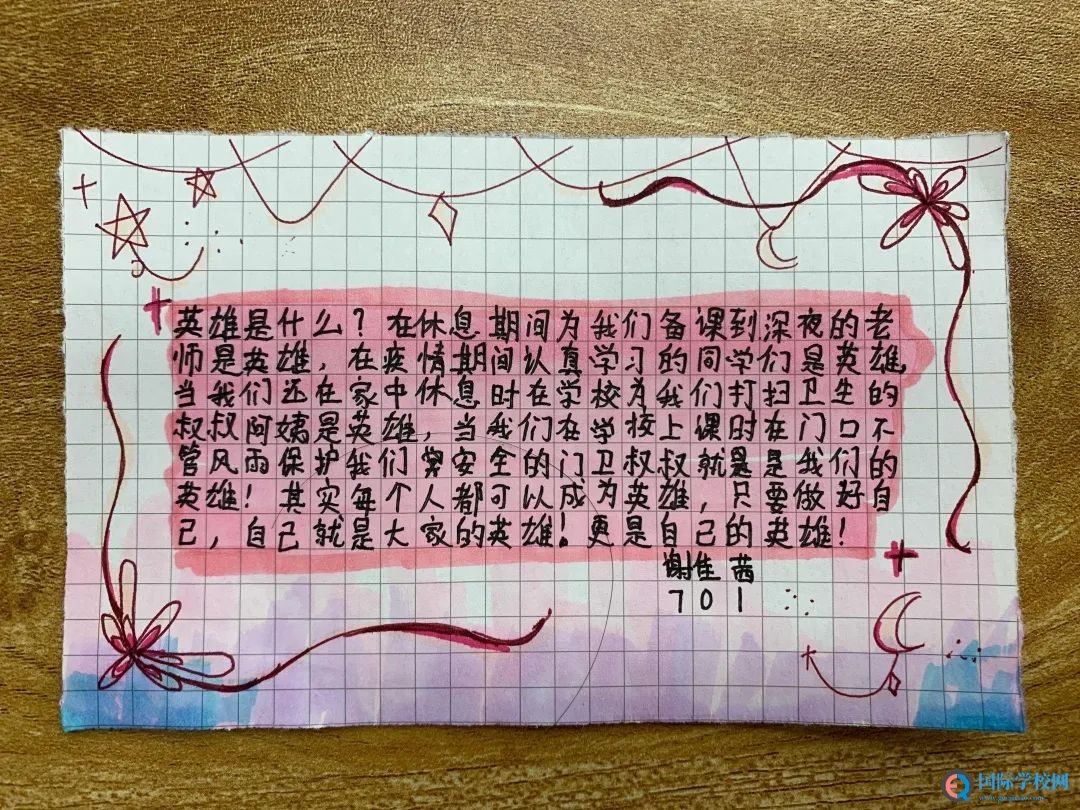 英雄是什么？在休息期间为我们备课到深夜的老
师是英雄，在疫情期间认真学习的同学们是英雄，
当我们还在家中休息时在学校为我们打扫卫生的
叔叔阿姨是英雄，当我们在学校上课时在门口不
管风雨保护我们安全的门卫叔叔就是是我们的
英雄！其实每个人都可以成为英雄，只要做好自
己，自己就是大家的英雄！更是自己的英雄！
谢佳茜
701
国际学校网